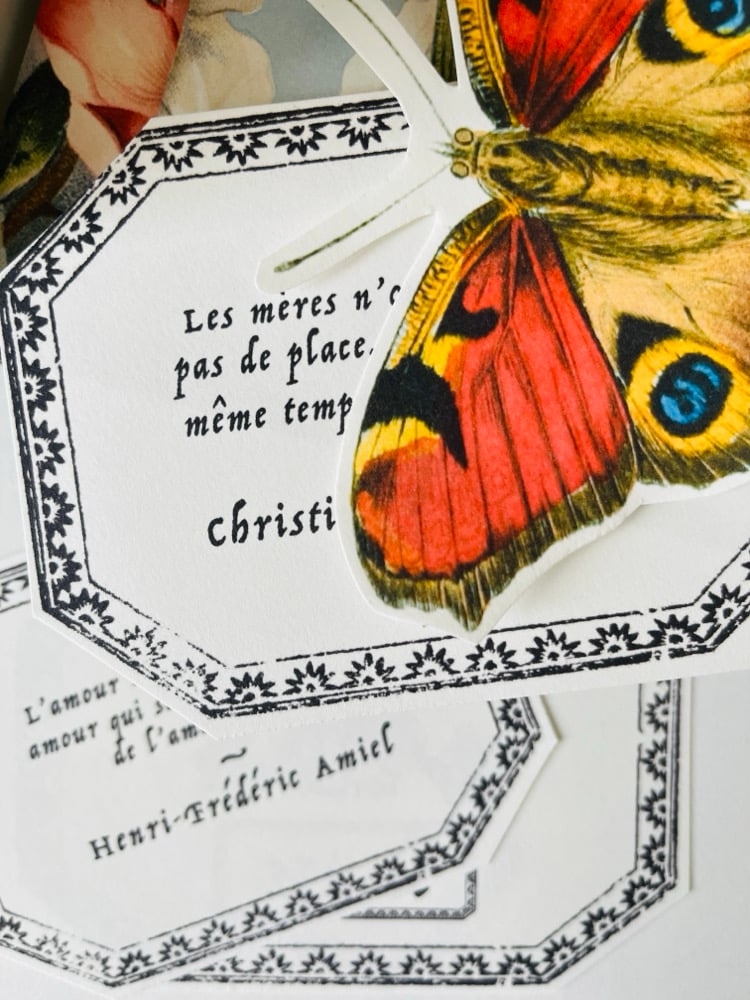 Les mères n'
pas de place.
même temp
Christi
L'amour
amour qui s
de l'am
~
Henri-Frédéric Amiel